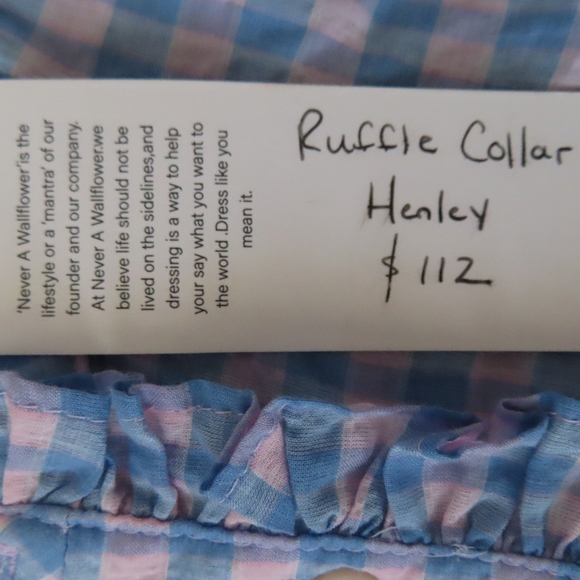 'Never A Wallflower'is the
lifestyle or a 'mantra' of our
founder and our company.
At Never A Wallflower.we
believe life should not be
lived on the sidelines,and
dressing is a way to help
your say what you want to
the world .Dress like you
mean it.
Ruffle Collar
Henley
$ 112